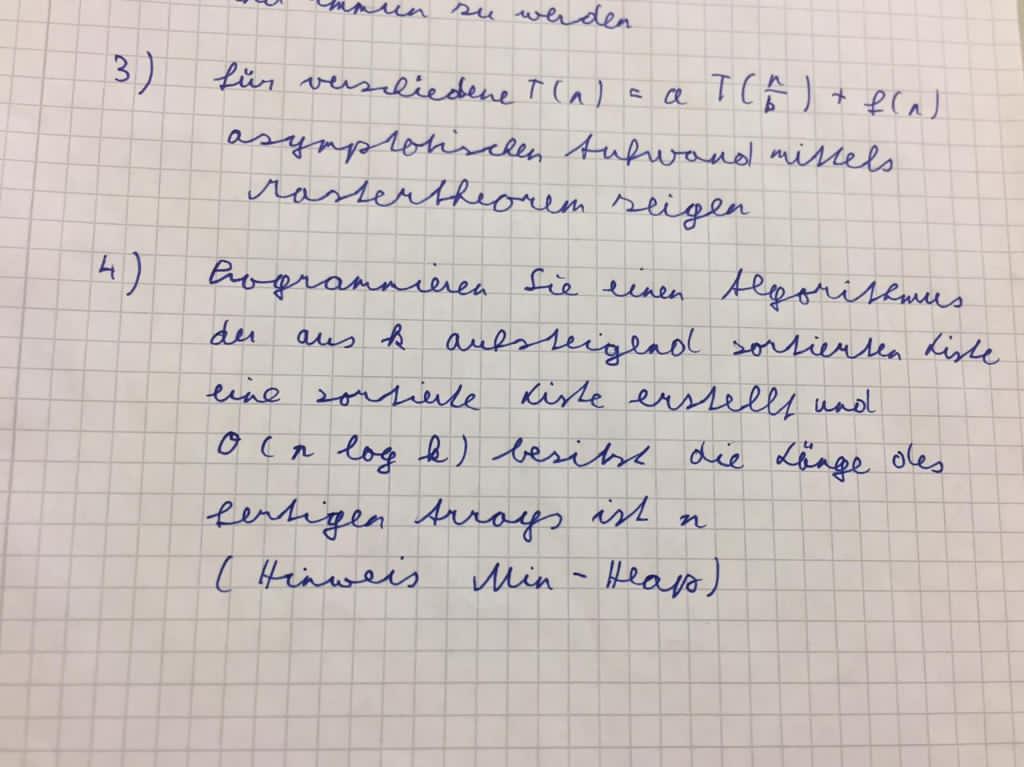 immun zu werden
3) für verschiedene T(n) = a T(n/b) + f(n)
asymptotischen Aufwand mittels
Mastertheorem zeigen
4) Programmieren Sie einen Algorithmus
der aus k aufsteigend sortierten Liste
eine sortierte Liste erstellt und
O(n log k) besitzt die Länge des
fertigen Arrays ist n
(Hinweis Min-Heap)